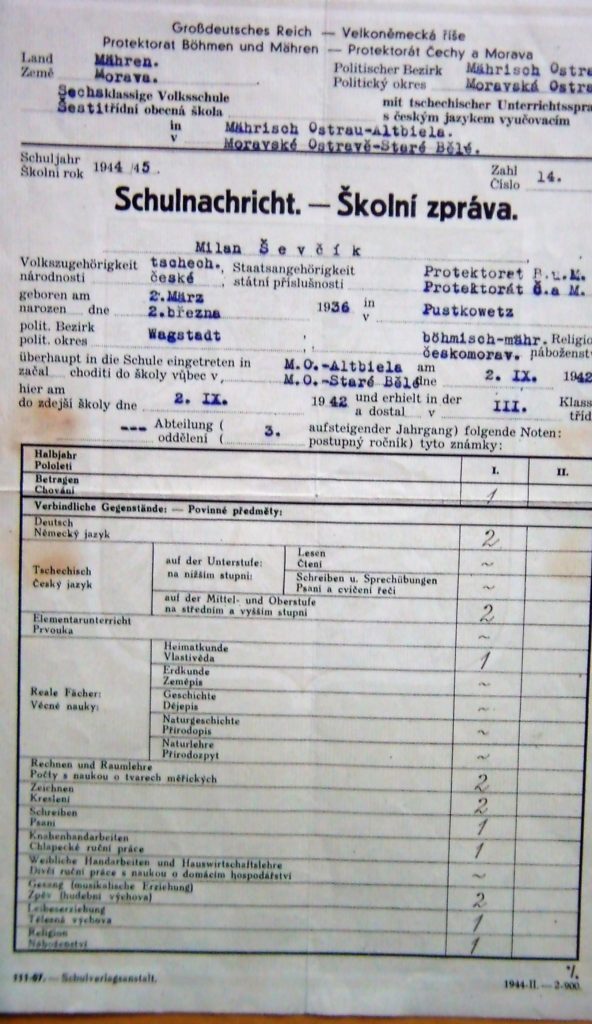 Großdeutsches Reich — Velkoněmecká říše
Protektorat Böhmen und Mähren — Protektorát Čechy a Morava
Land Mähren. Politischer Bezirk Mährisch Ostra
Země Morava. Politický okres Moravská Ostra
Sechsklassige Volksschule mit tschechischer Unterrichtsspra
Šestitřídní obecná škola s českým jazykem vyučovacím
in Mährisch Ostrau-Altbiela.
v Moravské Ostravě-Staré Bělé.
Schuljahr Zahl
Školní rok 1944/45. Číslo 14.
Schulnachricht. — Školní zpráva.
Milan Ševčík
Volkszugehörigkeit tschech. Staatsangehörigkeit Protektoret B.u.M.
národnosti české státní příslušnosti Protektorát Č.a M.
geboren am 2.März 1936 in
narozen dne 2.března v Pustkowetz
polit. Bezirk Wagstadt böhmisch-mähr. Religio
polit. okres českomorav. náboženst
überhaupt in die Schule eingetreten in M.O.-Altbiela am
začal choditi do školy vůbec v M.O.-Staré Bělé dne 2. IX. 1942
hier am 2. IX. 1942 und erhielt in der III. Klass
do zdejší školy dne a dostal v tříd
--- Abteilung ( 3. aufsteigender Jahrgang) folgende Noten:
oddělení ( postupný ročník) tyto známky:
Halbjahr I. II.
Pololetí
Betragen
Chování 1
Verbindliche Gegenstände: — Povinné předměty:
Deutsch
Německý jazyk 2
Tschechisch
Český jazyk
auf der Unterstufe:
na nižším stupni:
Lesen
Čtení ~
Schreiben u. Sprechübungen
Psaní a cvičení řeči ~
auf der Mittel- und Oberstufe
na středním a vyšším stupni 2
Elementarunterricht
Prvouka ~
Reale Fächer:
Věcné nauky:
Heimatkunde
Vlastivěda 1
Erdkunde
Zeměpis ~
Geschichte
Dějepis ~
Naturgeschichte
Přírodopis ~
Naturlehre
Přírodozpyt ~
Rechnen und Raumlehre
Počty s naukou o tvarech měřických 2
Zeichnen
Kreslení 2
Schreiben
Psaní 1
Knabenhandarbeiten
Chlapecké ruční práce 1
Weibliche Handarbeiten und Hauswirtschaftslehre
Dívčí ruční práce s naukou o domácím hospodářství ~
Gesang (musikalische Erziehung)
Zpěv (hudební výchova) 2
Leibeserziehung
Tělesná výchova 1
Religion
Náboženství 1
%
111-67. — Schulverlagsanstalt. 1944-II. — 2-900.